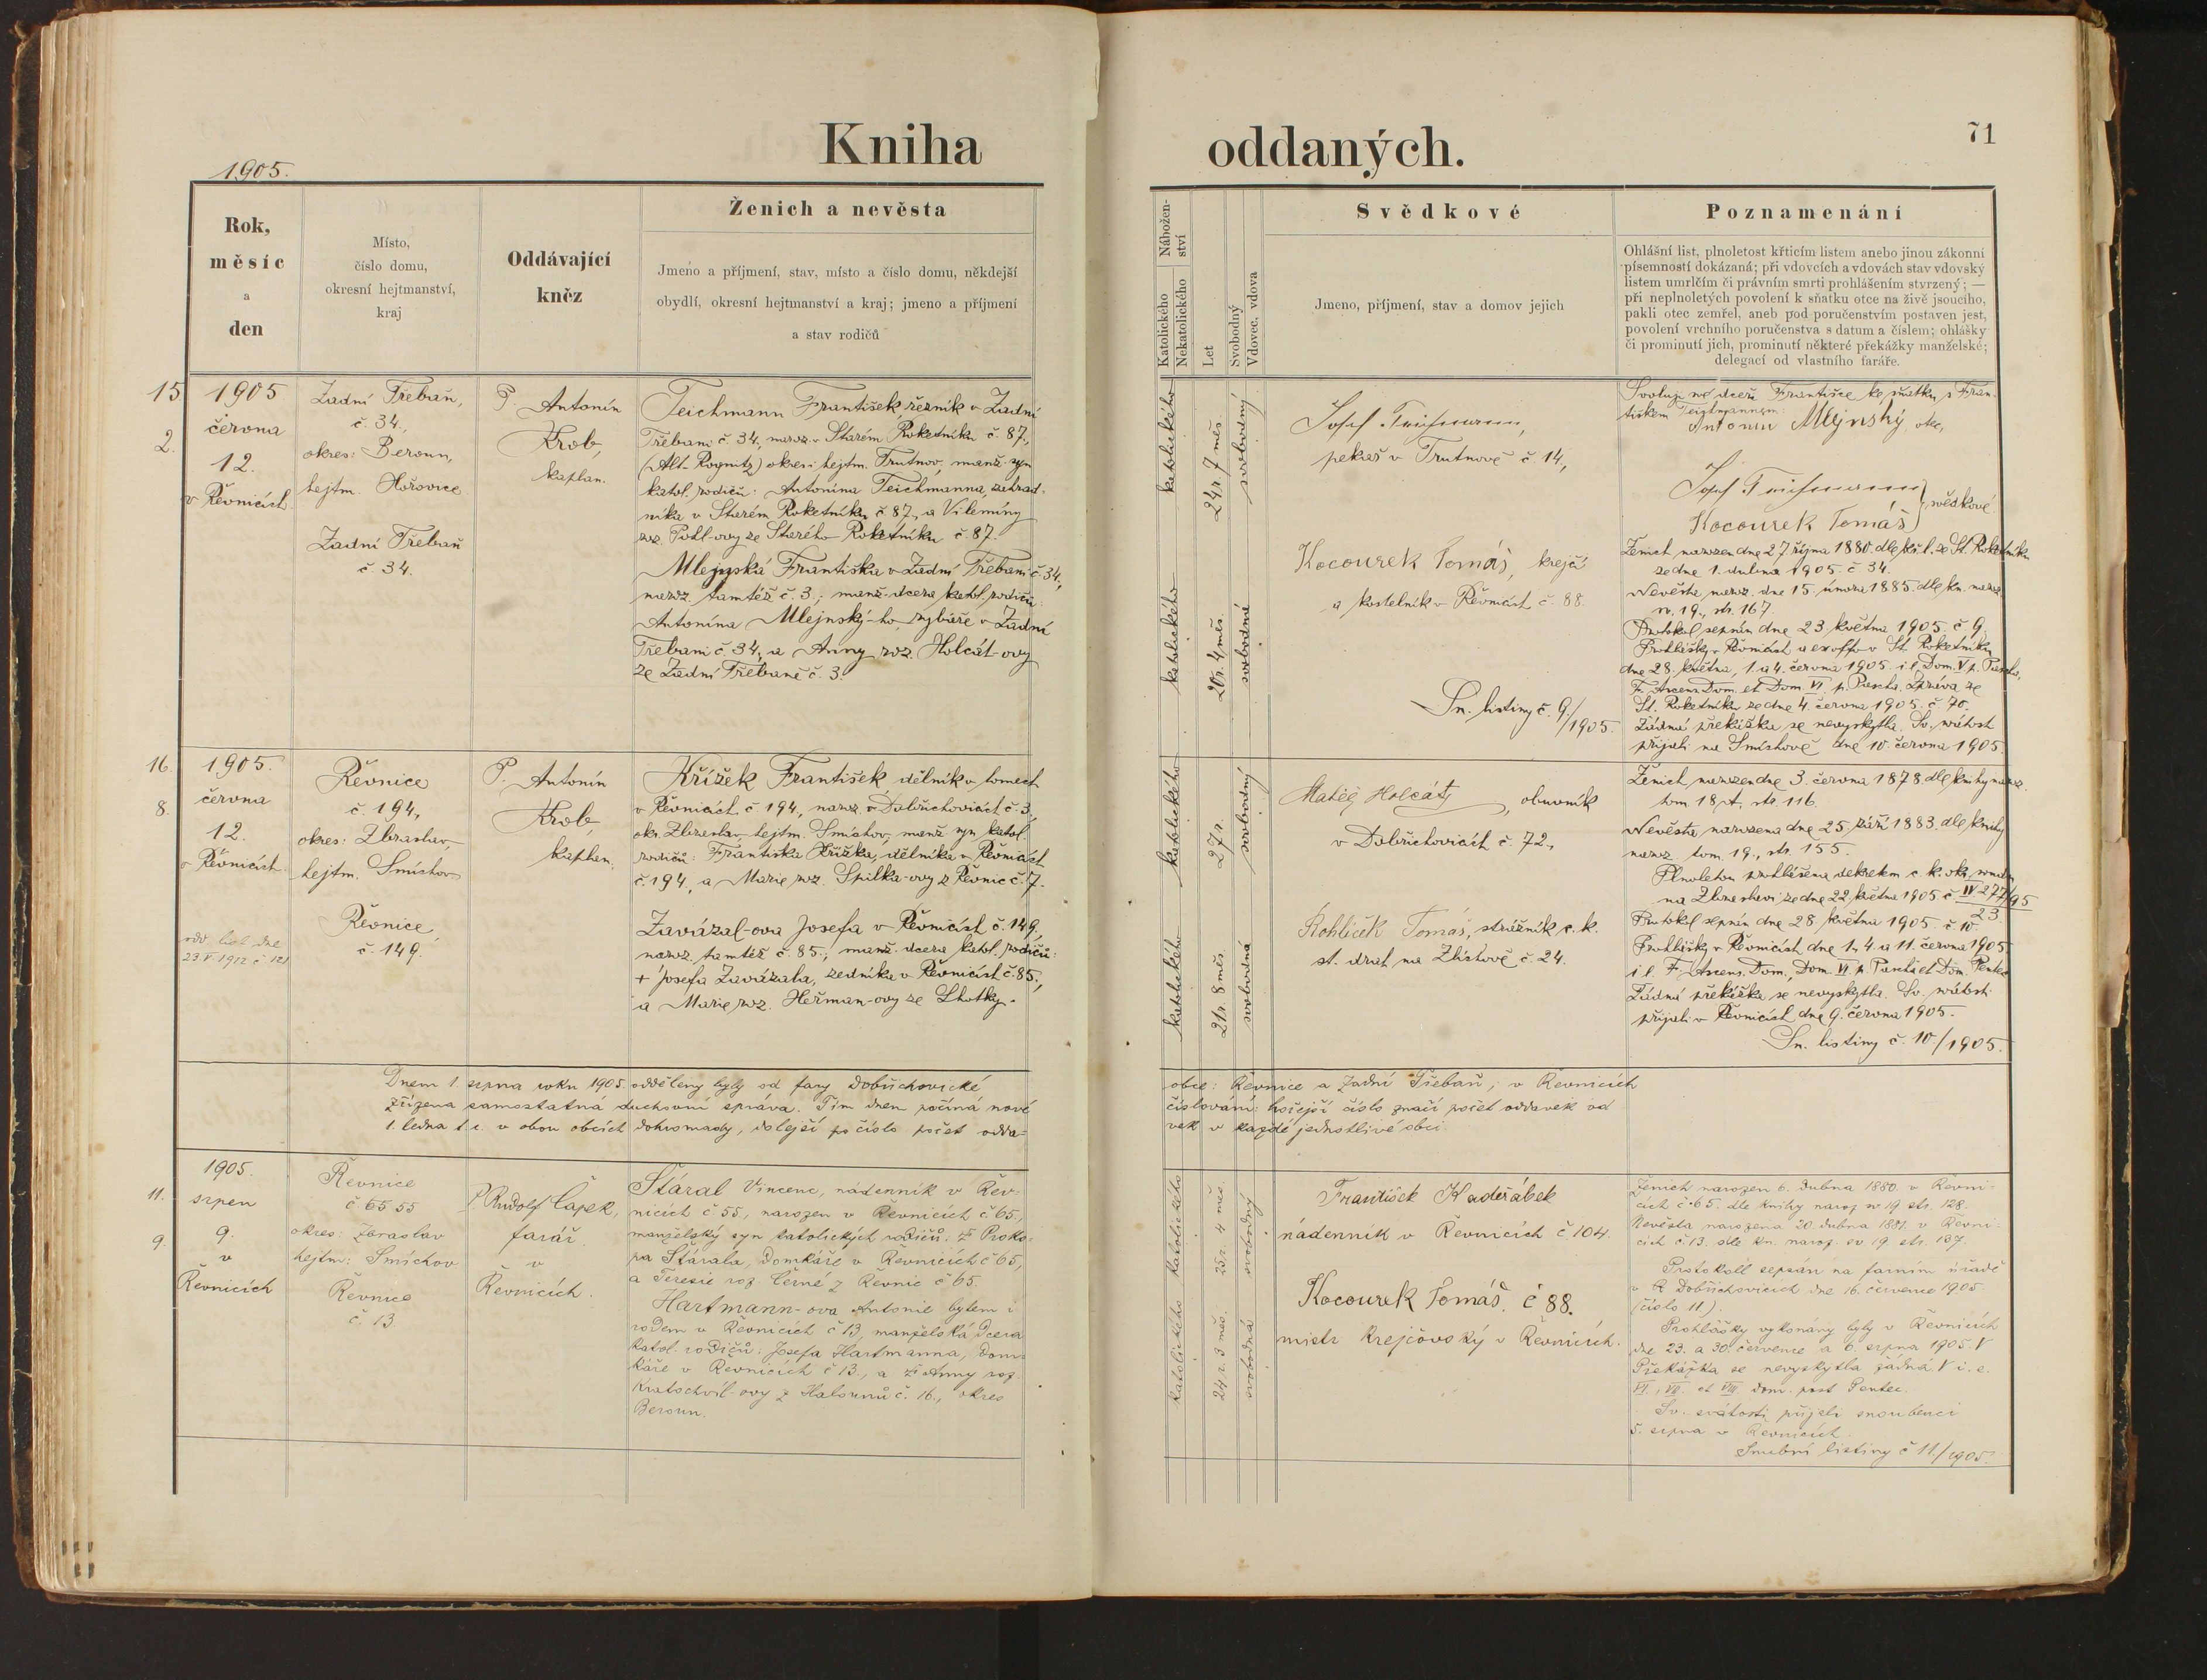 Kniha
1905.
Rok,
měsíc
a
den
Místo,
číslo domu,
okresní hejtmanství,
kraj
Oddávající
kněz
Ženich a nevěsta
Jmeno a příjmení, stav, místo a číslo domu, někdejší
obydlí, okresní hejtmanství a kraj; jmeno a příjmení
a stav rodičů
15
2.
1905
června
12.
v Řevnicích
Zadní Třebaň,
č. 34.,
okres: Beroun,
hejtm. Hořovice
Zadní Třebaň
č 34.
P. Antonín
Krob,
kaplan.
Teichmann František řezník v Zadní
Třebani č 34, naroz. v Starém Rokytníku č. 87.,
(Alt. Rognitz) okres i hejtm. Trutnov, manž. syn
katol. rodičů: Antonína Teichmanna, zahrad-
níka v Starém Rokytníku č 87., a Vilemíny
roz. Pohl-ovy ze Starého Rokytníku č. 87.
Mlejnská Františka v Zadní Třebani č 34,
naroz. tamtéž č. 3.; manž. dcera katol. rodičů:
Antonína Mlejnský-ho, rybáře v Zadní
Třebani č 34, a Anny roz. Holcát-ovy
ze Zadní Třebaně č. 3.
16.
8.
1905.
června
12.
v Řevnicích
odd. list dne
23 V. 1912 č 121
Řevnice
č 194,
okres: Zbraslav,
hejtm. Smíchov
Řevnice
č. 149.
P. Antonín
Krob,
kaplan.
Křížek František, dělník v lomech
v Řevnicích č 194, naroz. v Dobřichovicích č. 3,
okr. Zbraslav, hejtm. Smíchov, manž. syn katol.
rodičů: Františka Křížka, dělníka v Řevnicích
č. 194, a Marie roz. Spilka-ovy z Řevnic č. 7.
Zavázal-ova Josefa v Řevnicích č. 149.,
naroz. tamtéž č. 85.; manž. dcera katol. rodičů:
+ Josefa Zavázala, zedníka v Řevnicích č. 85.,
a Marie roz. Heřman-ovy ze Lhotky.
Dnem 1. srpna roku 1905. odděleny byly od fary Dobřichovické
zřízena samostatná duchovní správa. Tím dnem počíná nové
1. ledna t. r. v obou obcích dohromady, dolejší po číslo počet odda-
11.
9.
1905.
srpen
9.
v
Řevnicích
Řevnice
č 65 55
okres: Zbraslav
hejtm: Smíchov
Řevnice
č. 13
P. Rudolf Čapek,
farář
v
Řevnicích.
Stáral Vincenc, nádenník v Řev-
nicích č 55, narozen v Řevnicích č 65.,
manželský syn katolických rodičů: Proko-
pa Stárala, domkáře v Řevnicích č 65,
a Teresie roz. Černé z Řevnic č 65.
Hartmann-ova Antonie bytem i
rodem v Řevnicích č 13, manželská dcera
katol. rodičů: Josefa Hartmanna, dom-
káře v Řevnicích č 13., a Anny roz.
Kratochvíl-ovy z Halounů č. 16., okres
Beroun.
oddaných.
71
Nábožen-
ství
Katolického
Nekatolického
Let
Svobodný
Vdovec, vdova
Svědkové
Jmeno, příjmení, stav a domov jejich
Poznamenání
Ohlášní list, plnoletost křticím listem anebo jinou zákonní
písemností dokázaná; při vdovcích a vdovách stav vdovský
listem umrlčím či právním smrti prohlášením stvrzený; —
při neplnoletých povolení k sňatku otce na živě jsoucího,
pakli otec zemřel, aneb pod poručenstvím postaven jest,
povolení vrchního poručenstva s datum a číslem; ohlášky
či prominutí jich, prominutí některé překážky manželské;
delegací od vlastního faráře.
katolického
24 r. 7 měs.
svobodný
katolického
20 r. 4 měs.
svobodná
Josef Teichmann,
pekař v Trutnově č. 14.,
Kocourek Tomáš, krejčí
a kostelník v Řevnicích č. 88.
Sn. listiny č. 9./1905.
Svoluji své dceři Františce ke sňatku s Fran-
tiškem Teichmannem:
Antonin Mlejnský, otec,
Josef Teichmann
Kocourek Tomáš } svědkové
Ženich narozen dne 27 října 1880. dle kř. l. ze St. Rokytníku
ze dne 1. dubna 1905. č 34.
Nevěsta naroz. dne 15. února 1885. dle kn. naroz.
sv. 19., str. 167.
Protokol sepsán dne 23 května 1905 č 9,
Prohlášky v Řevnicích a ex offo v St. Rokytníku
dne 28. května, 1. a 4. června 1905. i. e. Dom. V p. Pascha,
F. Ascens. Dom. et Dom. VI. p. Pascha. Zpráva ze
St. Rokytníku ze dne 4. června 1905. č 70.
Žádná překážka se nevyskytla. Sv. svátosti
přijali na Smíchově dne 10. června 1905.
katolického
27 r.
svobodný
katolického
21 r. 8 měs.
svobodná
Matěj Holcát, obuvník
v Dobřichovicích č. 72.,
Rohlíček Tomáš, strážník c. k.
st. drah na Zlíchově č. 24.
Ženich narozen dne 3. června 1878. dle knihy naroz.
tom. 18 A, str. 116.
Nevěsta narozena dne 25. září 1883. dle knihy
naroz. tom. 19., str. 155.
Plnoletou prohlášena dekretem c. k. okr. soudu
na Zbraslavi ze dne 22. května 1905. č IV 277/95
23
Protokol sepsán dne 28 května 1905. č. 10.
Prohlášky v Řevnicích dne 1., 4. a 11. června 1905.
i. e. F. Ascens. Dom., Dom. VI p. Pascha et Dom. Pentec.
Žádná překážka se nevyskytla. Sv. svátosti
přijali v Řevnicích dne 9. června 1905.
Sn. listiny č. 10./1905.
obce: Řevnice a Zadní Třebaň; v Řevnicích
číslování: hořejší číslo značí počet oddavek od
vek v každé jednotlivé obci.
katolického
25 r. 4 měs.
svobodný
katolického
24 r. 3 měs.
svobodná
František Kadeřábek
nádenník v Řevnicích č 104.
Kocourek Tomáš. č 88.
mistr krejčovský v Řevnicích.
Ženich narozen 6. dubna 1880. v Řevni-
cích č. 65. dle knihy naroz. sv 19 str. 128.
Nevěsta narozena 20 dubna 1881. v Řevni-
cích č. 13. dle kn. naroz. sv 19 str. 137
Protokoll sepsán na farním úřadě
v Dobřichovicích dne 16. července 1905.
(číslo 11).
Prohlášky vykonány byly v Řevnicích
dne 23. a 30. července a 6. srpna 1905. V
Překážka se nevyskytla žádná V i. e.
VI., VII. et VIII dom. post Pentec.
Sv. svátosti přijali snoubenci
5. srpna v Řevnicích.
Snubní listiny č 11./1905.